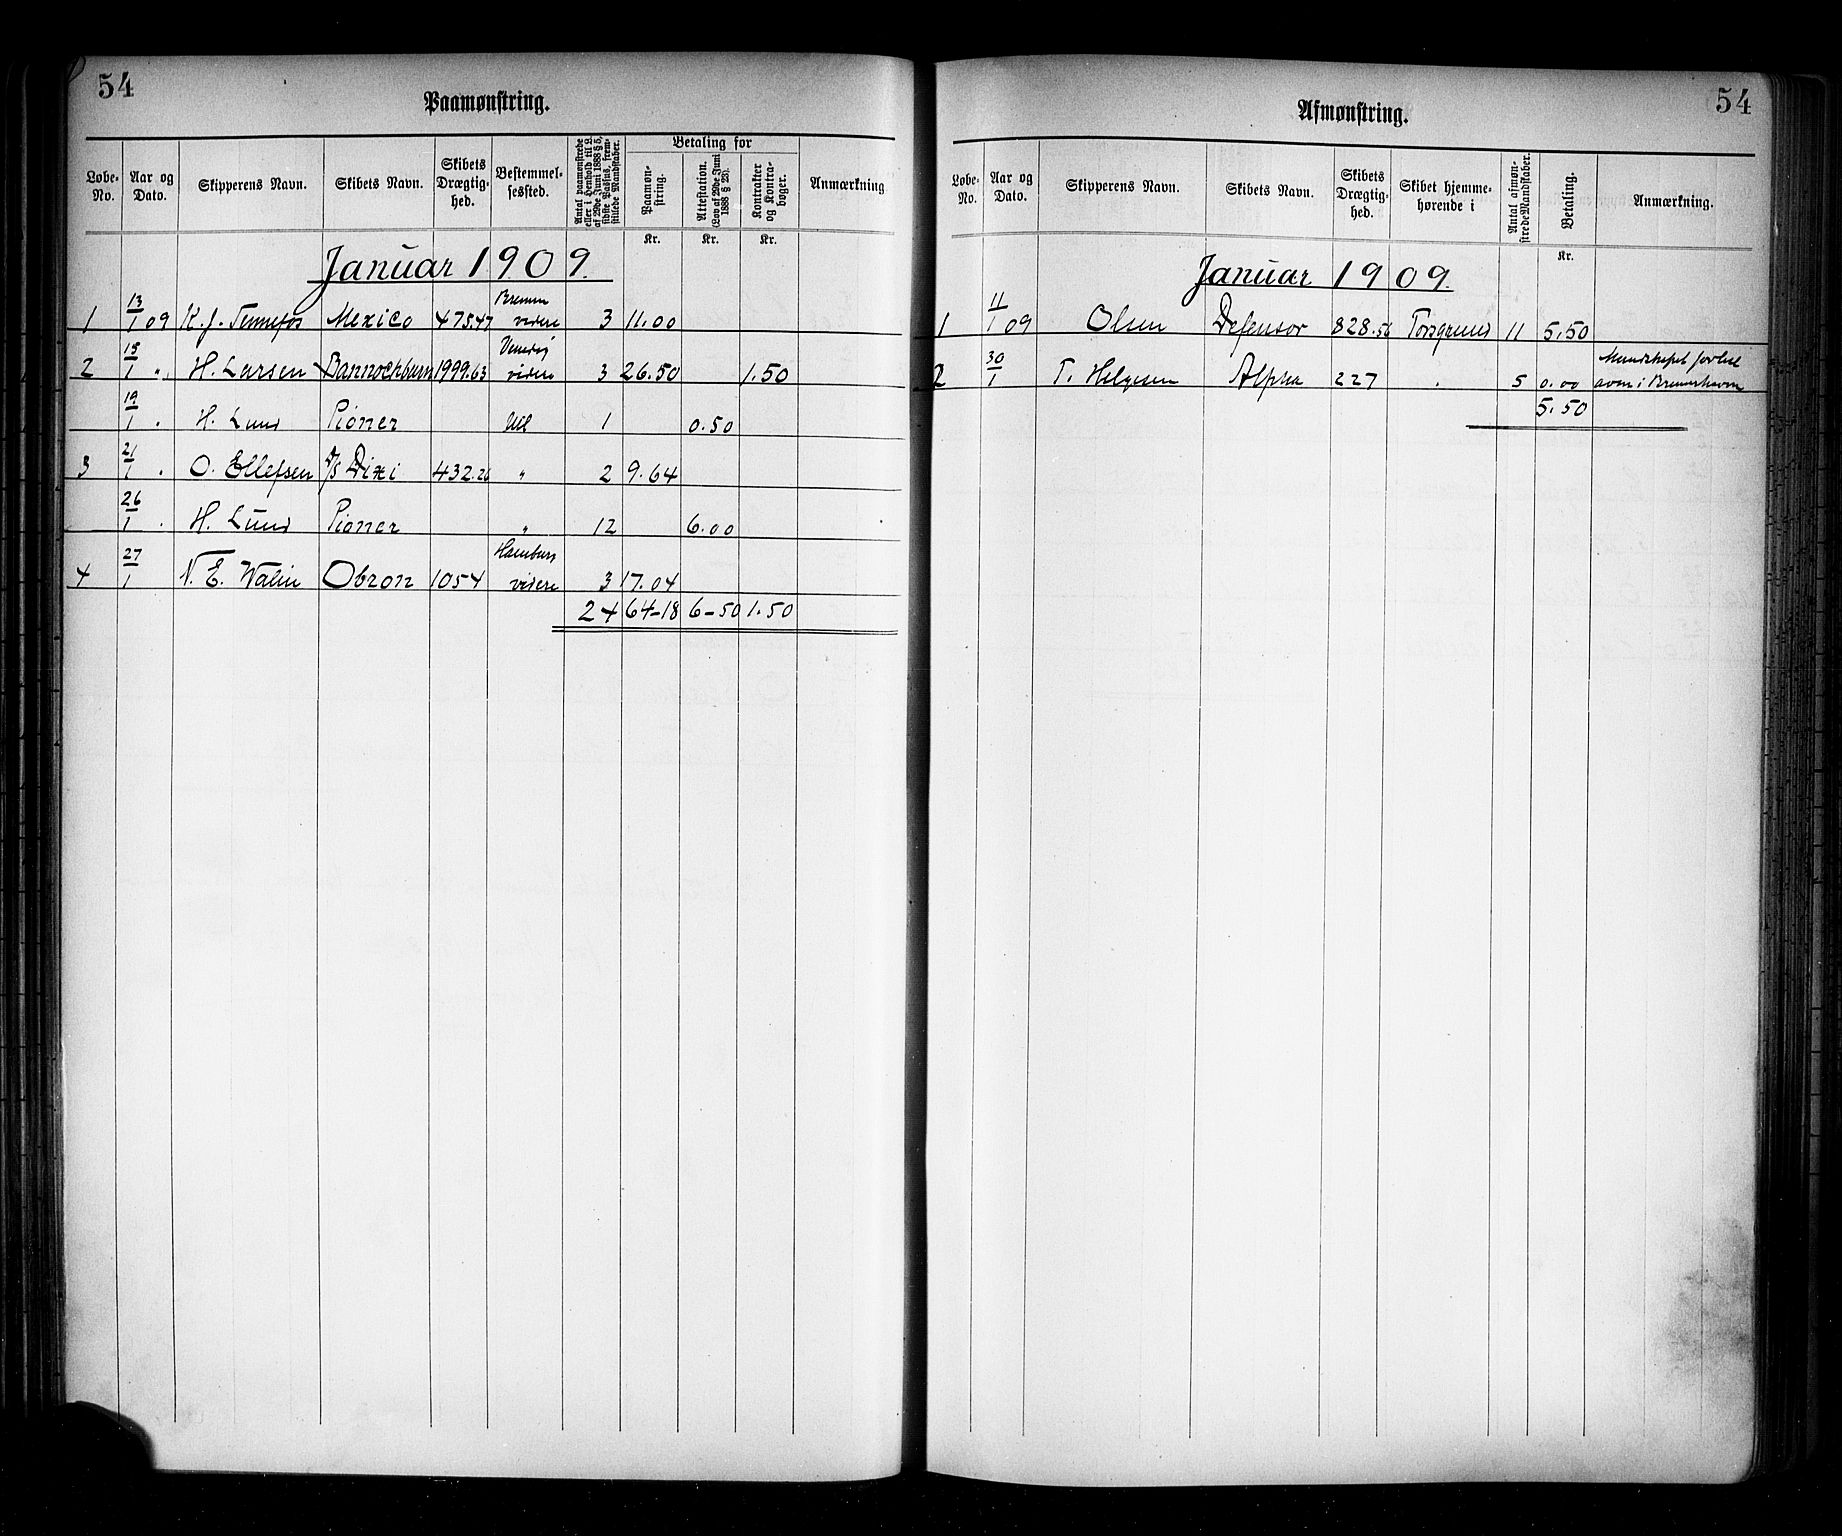 54
Paamønstring.
Løbe-No. Aar og Dato. Skipperens Navn. Skibets Navn. Skibets Drægtig-hed. Bestemmel-sessted. Antal paamønstrede eller i Henhold til L. af 29de Juni 1888 § 5, sidste Passus, frem-stillede Mandskaber. Betaling for Paamøn-string. Attestation. (Lov af 29de Juni 1888 § 28). Kontrakter og Kontra-bøger. Anmærkning
Kr. Kr. Kr.
Januar 1909.
1 13/1 09 K. J. Tennefos Mexico 475.47 Bremen videre 3 11.00
2 15/1 „ H. Larsen Bannochburn 1999.63 Venedig videre 3 26.50 1.50
19/1 „ H. Lund Pioner Ull 1 0.50
3 21/1 „ O. Ellefsen D/S Dixi 432.26 „ 2 9.64
26/1 „ H. Lund Pioner „ 12 6.00
4 27/1 N. E. Walin Obron 1054 Hamburg videre 3 17.04
24 64-18 6-50 1.50
54
Afmønstring.
Løbe-No. Aar og Dato. Skipperens Navn. Skibets Navn. Skibets Drægtig-hed. Skibet hjemme-hørende i Antal afmøn-strede Mandskaber. Betaling. Anmærkning.
Kr.
Januar 1909.
1 11/1 09 Olsen Defensor 828.56 Porsgrund 11 5.50
2 30/1 T. Helgesen Alpha 227 „ 5 0.00 Mandskapet i Bremerhaven
5.50